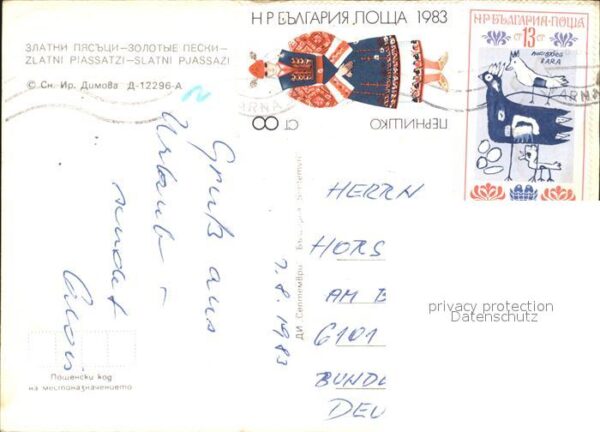 ЗЛАТНИ ПЯСЪЦИ—ЗОЛОТЫЕ ПЕСКИ—
ZLATNI PIASSATZI—SLATNI PJASSAZI
© Сн. Ир. Димова Д-12296-А
Н Р БЪЛГАРИЯ, ПОЩА 1983
ПЕРНИШКО
СТ 8
НР БЪЛГАРИЯ·ПОЩА
СТ 13 СТ
ЗАРА
ARNA
ARNA
Gruß aus
Urlaub –
sendet
7.8.1983
ДИ Септември
HERRN
HORS
AM B
6101
BUNDE
DEU
privacy protection
Datenschutz
Пощенски код
на местоназначението